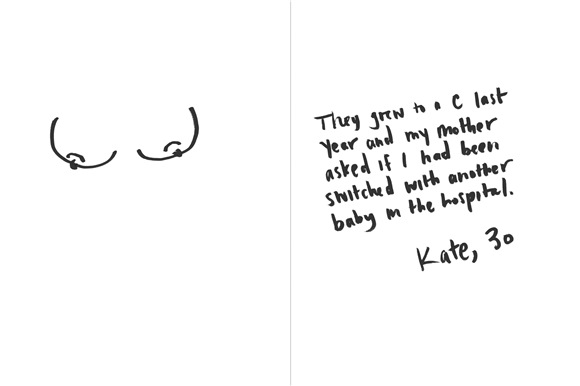 They grew to a C last
year and my mother
asked if I had been
switched with another
baby in the hospital.
Kate, 30